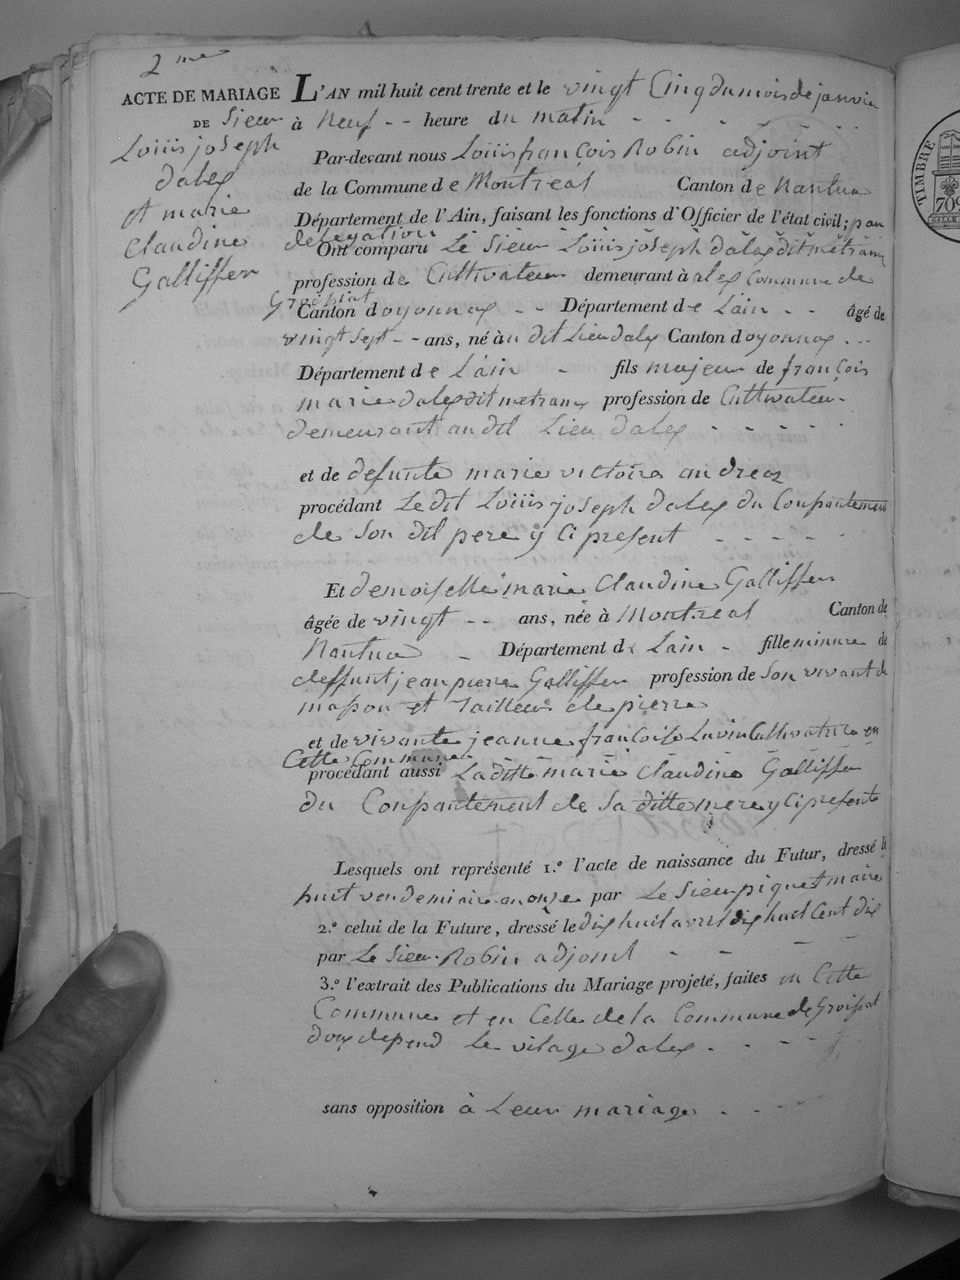 2me
ACTE DE MARIAGE
DE Sieur
Louis joseph
dalex
et marie
Claudine
Galliffer
L'AN mil huit cent trente et le vingt Cinq du mois de janvier
à Neuf - - heure du matin - - - - -
Par-devant nous Louis françois Robin adjoint
de la Commune de Montreal Canton de Nantua
Département de l'Ain, faisant les fonctions d'Officier de l'état civil; par
delegation
Ont comparu Le Sieur Louis joseph dalex dit métrans
profession de Cultivateur demeurant à alex Commune de
Groissiat
Canton doyonnax - - Département de Lain - - âgé de
vingt Sept - - ans, né audit Lieu dalex Canton doyonnax . . .
Département de Lain - fils majeur de françois
marie dalex dit metrans profession de Cultivateur -
demeurant audit Lieu dalex - - - - -
et de defunte marie victoire andrea
procédant Ledit Louis joseph dalex du Consantement
de Son dit pere y Ci present - - - - -
Et demoiselle marie Claudine Galliffer
âgée de vingt - - ans, née à Montreal Canton de
Nantua - Département de Lain - fille mineure de
deffunt jean pierre Galliffer profession de Son vivant de
masson et Tailleur de pierre
et de vivante jeanne françoise Cultivatrice en
Cette Commune
procédant aussi Laditte marie Claudine Galliffer
du Consantement de Sa ditte mere y Ci presente
Lesquels ont représenté 1.º l'acte de naissance du Futur, dressé le
huit vendemiaire an onze par Le Sieur piquet maire
2.º celui de la Future, dressé le dix huit avril dix huit Cent dix
par Le Sieur Robin adjoint - - - -
3.º l'extrait des Publications du Mariage projeté, faites en Cette
Commune et en Celle de la Commune de Groissiat
doux depend Le vilage dalex - - - - -
sans opposition à Leur mariage - - - -
TIMBRE